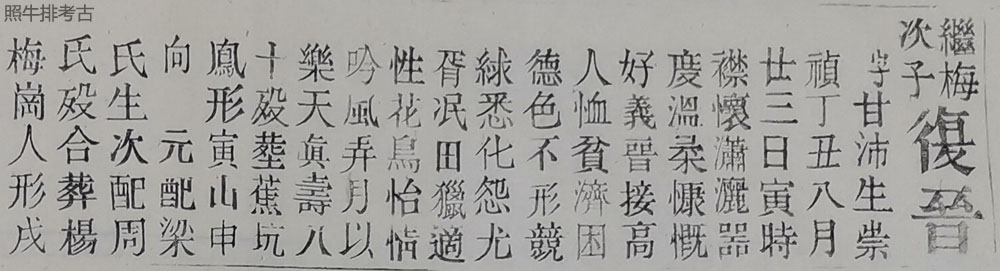 照牛排考古
繼梅
次子
復晉
字甘沛生崇
禎丁丑八月
廿三日寅時
襟懷瀟灑器
度溫柔慷慨
好義晉接高
人恤貧濟困
德色不形競
絿悉化怨尤
胥泯田獵適
性花鳥怡情
吟風弄月以
樂天眞壽八
十歿塟蕉坑
鳳形寅山申
向 元配梁
氏生次配周
氏歿合葬楊
梅崗人形戌